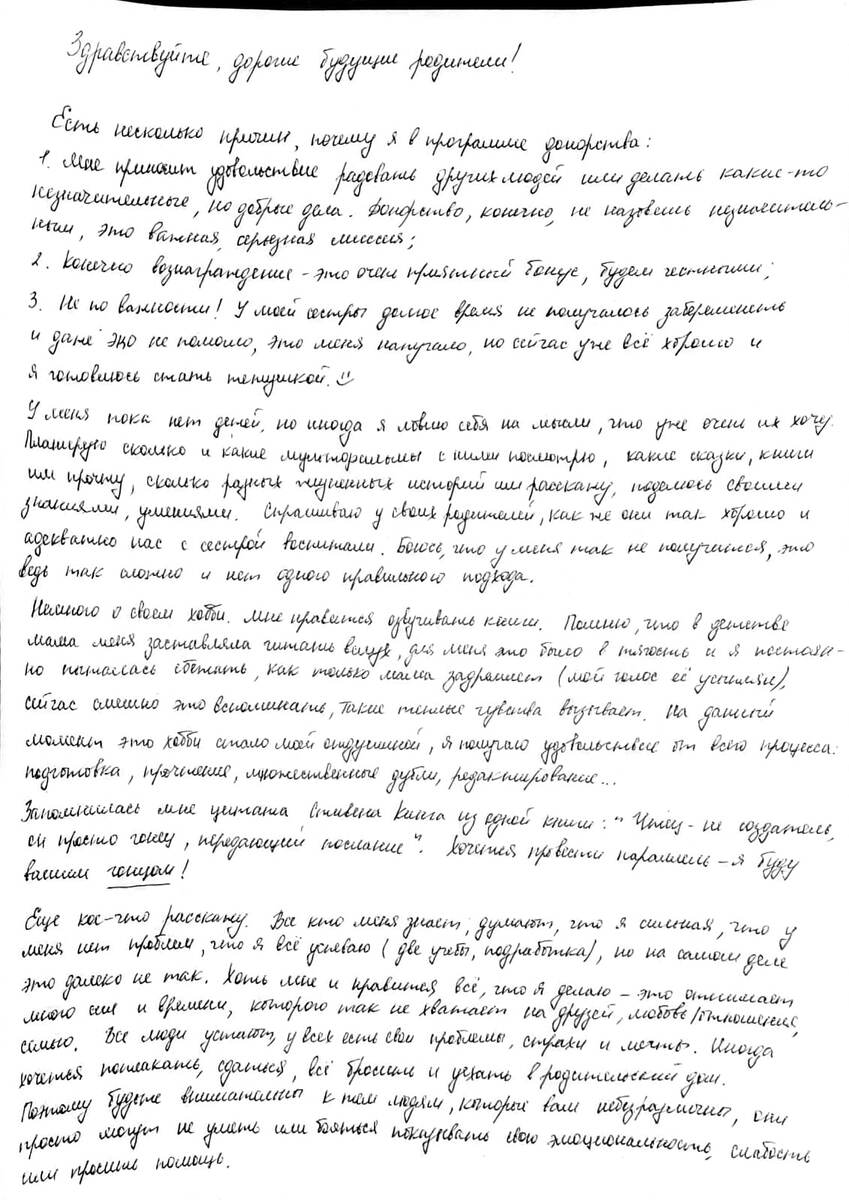 Здравствуйте, дорогие будущие родители!
Есть несколько причин, почему я в программе донорства:
1. Мне приносит удовольствие радовать других людей или делать какие-то
незначительные, но добрые дела. Донорство, конечно, не назовёшь незначитель-
ным, это важная, серьезная миссия;
2. Конечно вознаграждение - это очень приятный бонус, будем честными;
3. Не по важности! У моей сестры долгое время не получалось забеременеть
и даже эко не помогло, это меня напугало, но сейчас уже всё хорошо и
я готовлюсь стать тетушкой.
У меня пока нет детей, но иногда я ловлю себя на мысли, что уже очень их хочу.
Планирую сколько и какие мультфильмы с ними посмотрю, какие сказки, книги
им прочту, сколько разных жизненных историй им расскажу, поделюсь своими
знаниями, умениями. Спрашиваю у своих родителей, как же они так хорошо и
адекватно нас с сестрой воспитали. Боюсь, что у меня так не получится, это
ведь так сложно и нет одного правильного подхода.
Немного о своем хобби. Мне нравится озвучивать книги. Помню, что в детстве
мама меня заставляла читать вслух, для меня это было в тягость и я постоян-
но пыталась сбежать, как только мама задремлет (мой голос её усыплял),
сейчас смешно это вспоминать, такие теплые чувства вызывает. На данный
момент это хобби стало моей отдушиной, я получаю удовольствие от всего процесса:
подготовка, прочтение, множественные дубли, редактирование...
Запомнилась мне цитата Стивена Кинга из одной книги: "Чтец - не создатель,
он просто гонец, передающий послание". Хочется провести параллель - я буду
вашим гонцом!
Еще кое-что расскажу. Все кто меня знает, думают, что я сильная, что у
меня нет проблем, что я всё успеваю (две учебы, подработка), но на самом деле
это далеко не так. Хоть мне и нравится всё, что я делаю - это отнимает
много сил и времени, которого так не хватает на друзей, любовь/отношения,
семью. Все люди устают, у всех есть свои проблемы, страхи и мечты. Иногда
хочется поплакать, сдаться, всё бросить и уехать в родительский дом.
Поэтому будьте внимательны к тем людям, которые вам небезразличны, они
просто могут не уметь или бояться показывать свою эмоциональность, слабость
или просить помощь.